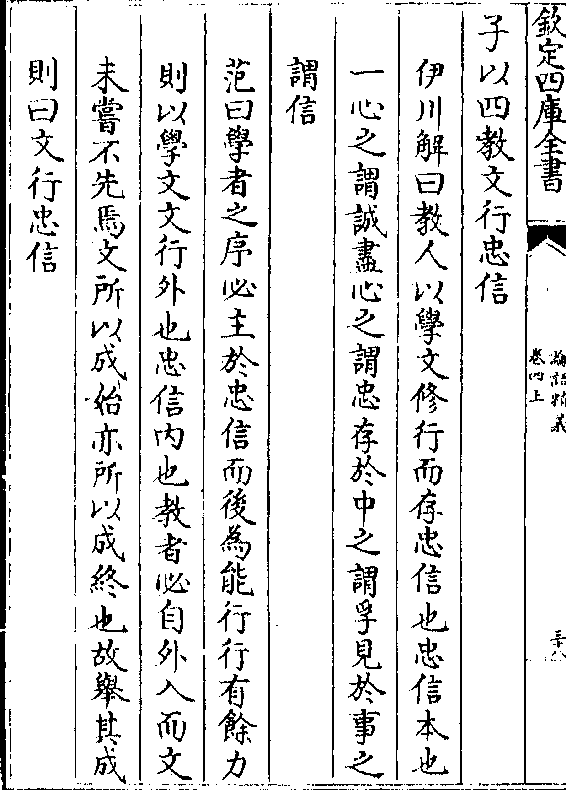 欽定四庫全書
論語精義
卷四上
子以四教文行忠信
伊川解曰教人以學文修行而存忠信也忠信本也
一心之謂誠盡心之謂忠存於中之謂孚見於事之
謂信
范曰學者之序必主於忠信而後為能行行有餘力
則以學文文行外也忠信内也教者必自外入而文
未嘗不先焉文所以成始亦所以成終也故舉其成
則曰文行忠信